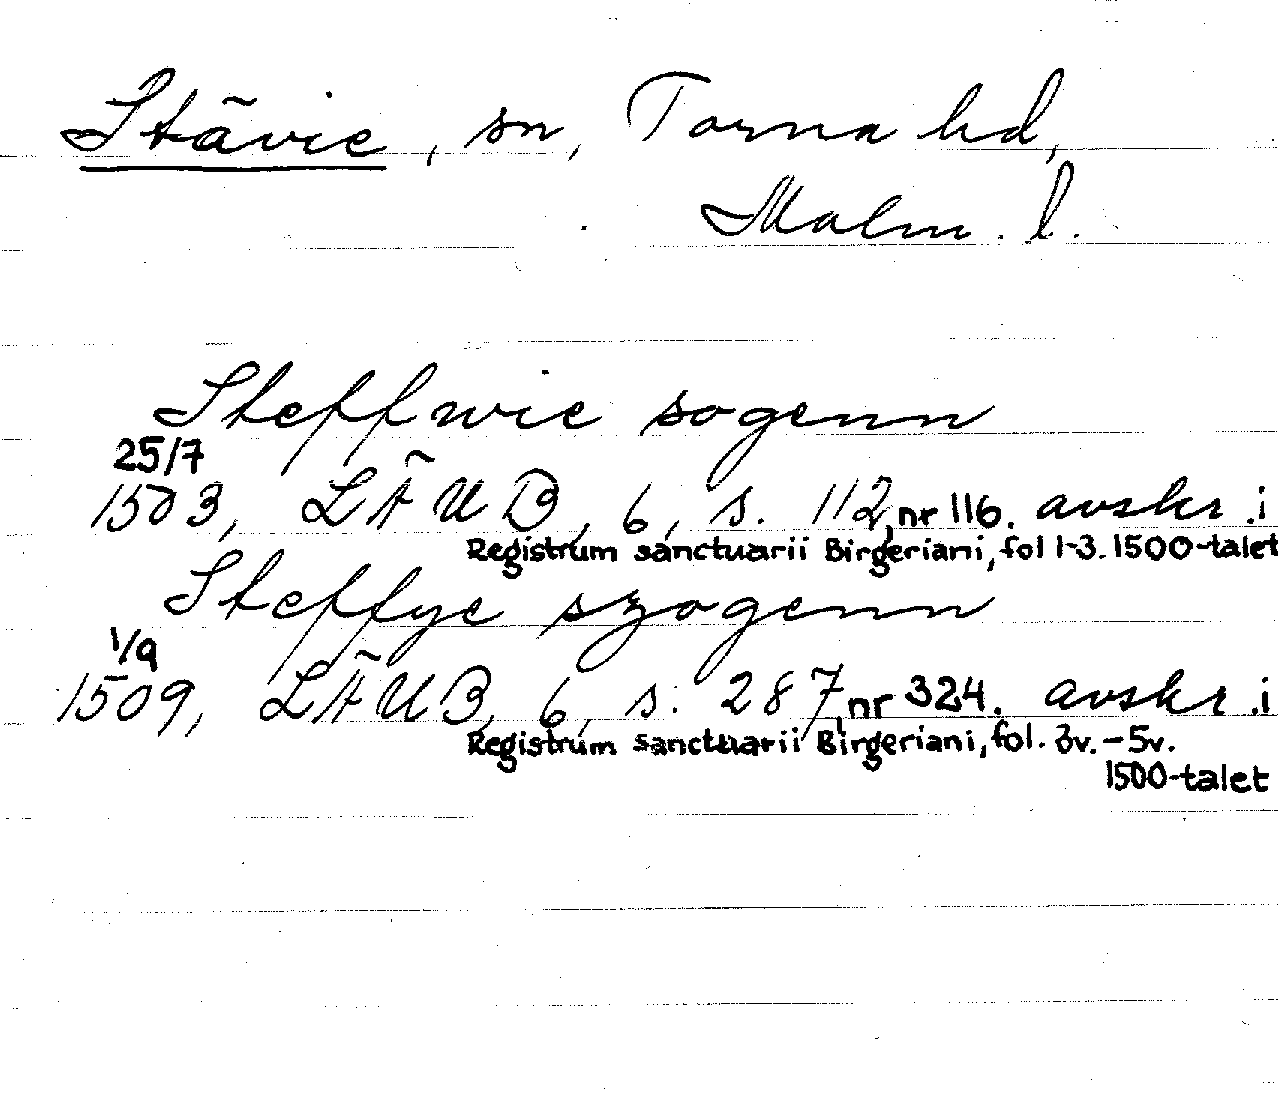 Stävie, sn, Torna hd,
Malm. l.
Steffwie sogenn
25/7
1503, LÄUB, 6, s. 112, nr 116. avskr. i
Registrum sanctuarii Birgeriani, fol 1-3. 1500-talet
Steffye szogenn
1/9
1509, LÄUB, 6, s. 287, nr 324. avskr. i
Registrum sanctuarii Birgeriani, fol. 3v.-5v.
1500-talet